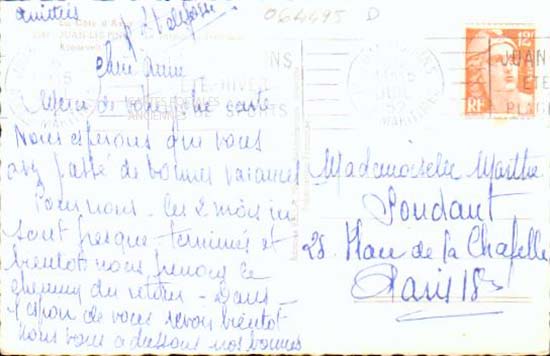 amitiés
064495 D
La Côte d'Azur
JUAN-LES-PINS
Chère Amie
Merci de votre jolie carte
Nous espérons que vous
avez passé de bonnes vacances
Pour nous - les 2 mois ici
sont presque terminés et
bientôt nous prenons le
chemin du retour - Dans
l'espoir de vous revoir bientôt
nous vous adressons nos bonnes
Mademoiselle Marthe
Pondant
28. Place de la Chapelle
Paris 18e
12F
RF
JUAN
ETE
PLAGE